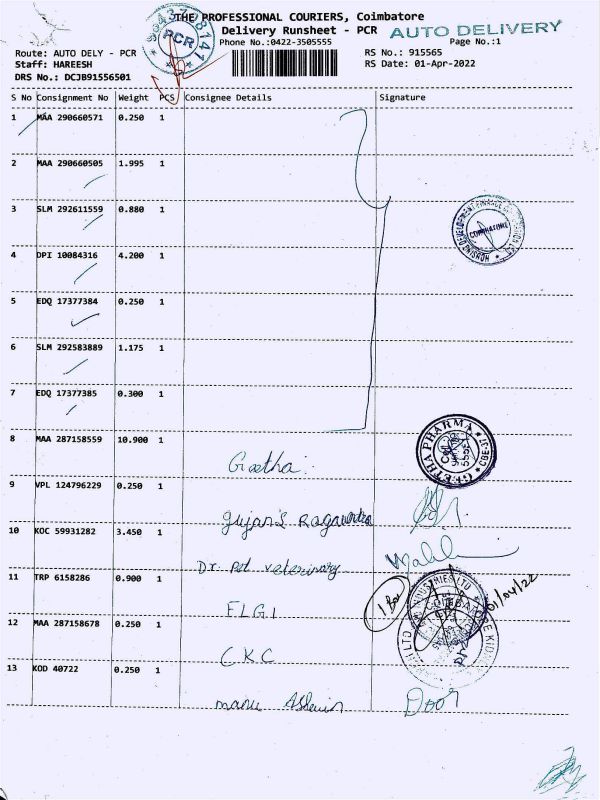 THE PROFESSIONAL COURIERS, Coimbatore
Delivery Runsheet - PCR
AUTO DELIVERY
Phone No.:0422-3505555
Page No.:1
Route: AUTO DELY - PCR
RS No.: 915565
Staff: HAREESH
RS Date: 01-Apr-2022
DRS No.: DCJB91556501
PCR
S No Consignment No Weight PCS Consignee Details Signature
1 MAA 290660571 0.250 1
2 MAA 290660505 1.995 1
3 SLM 292611559 0.880 1
COIMBATORE
4 DPI 10084316 4.200 1
5 EDQ 17377384 0.250 1
6 SLM 292583889 1.175 1
7 EDQ 17377385 0.300 1
8 MAA 287158559 10.900 1
Geetha
GEETHA PHARMA
9 VPL 124796229 0.250 1
10 KOC 59931282 3.450 1
Dr. pet veterinary
11 TRP 6158286 0.900 1
FLGI
01/04/22
12 MAA 287158678 0.250 1
CKC
13 KOD 40722 0.250 1
Door